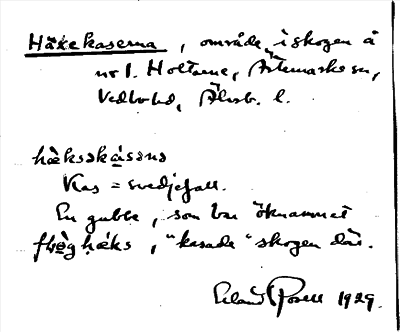 Häkekaserna, område i skogen å
nr 1. Holtane, Ärtemarks sn,
Vedbo hd, Älvsb. l.
häksskássṇs
Kas = svedjefall.
En gubbe, som bar öknamnet
håks, "kasade" skogen där.
1929.